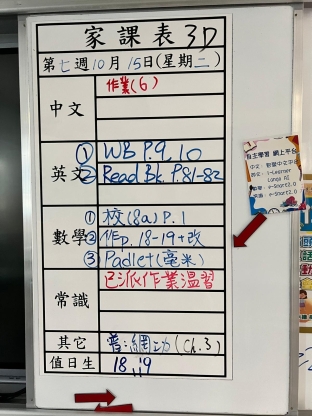 家課表 3D
第七週10月15日(星期二)
中文
作業(6)
英文
① WB P.9, 10
② Read Bk. P.81-82
數學
① 校(8a) P.1
② 作p. 18-19+改
③ Padlet(毫米)
常識
已派作業溫習
其它
普:網功(ch.3)
值日生
18, 19
自主學習 網上平台
i-Learner
e-Smart2.0
e-Smart2.0